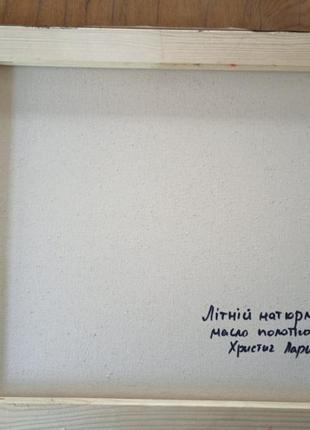 Літній натюрм
масло полотно
Христич Лари